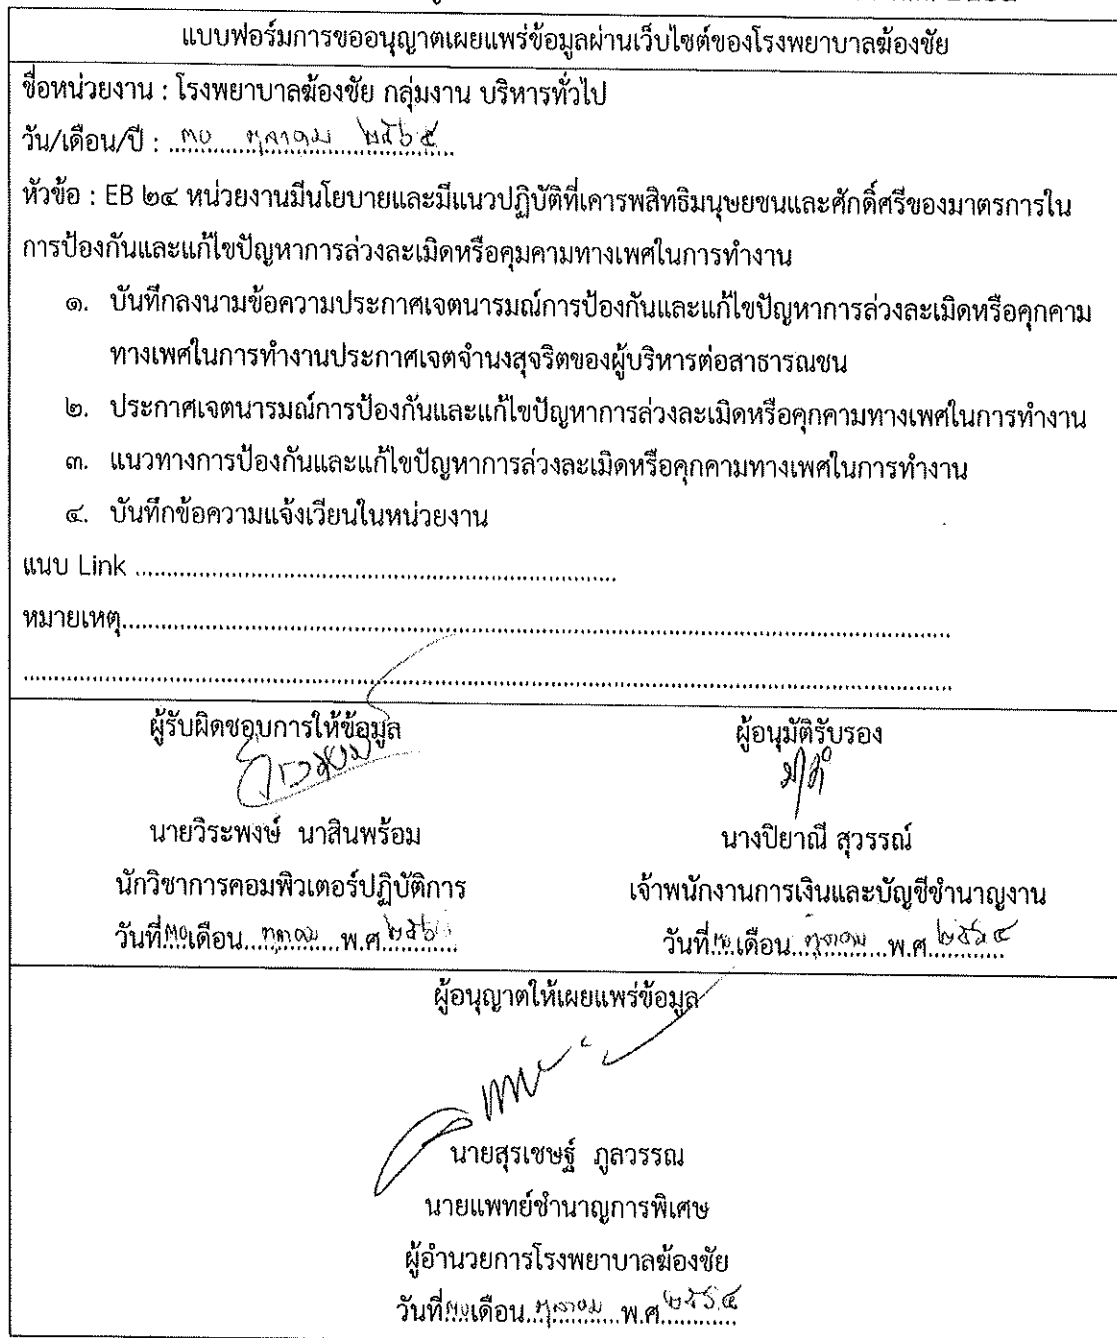 แบบฟอร์มการขออนุญาตเผยแพร่ข้อมูลผ่านเว็บไซต์ของโรงพยาบาลฆ้องชัย
ชื่อหน่วยงาน : โรงพยาบาลฆ้องชัย กลุ่มงาน บริหารทั่วไป
วัน/เดือน/ปี : ๓๐ ตุลาคม ๒๕๖๔
หัวข้อ : EB ๒๔ หน่วยงานมีนโยบายและมีแนวปฏิบัติที่เคารพสิทธิมนุษยชนและศักดิ์ศรีของมาตรการใน
การป้องกันและแก้ไขปัญหาการล่วงละเมิดหรือคุมคามทางเพศในการทำงาน
๑. บันทึกลงนามข้อความประกาศเจตนารมณ์การป้องกันและแก้ไขปัญหาการล่วงละเมิดหรือคุกคาม
ทางเพศในการทำงานประกาศเจตจำนงสุจริตของผู้บริหารต่อสาธารณชน
๒. ประกาศเจตนารมณ์การป้องกันและแก้ไขปัญหาการล่วงละเมิดหรือคุกคามทางเพศในการทำงาน
๓. แนวทางการป้องกันและแก้ไขปัญหาการล่วงละเมิดหรือคุกคามทางเพศในการทำงาน
๔. บันทึกข้อความแจ้งเวียนในหน่วยงาน
แนบ Link ........................................................................
หมายเหตุ..............................................................................................................................
..............................................................................................................................................
ผู้รับผิดชอบการให้ข้อมูล ผู้อนุมัติรับรอง
นายวิระพงษ์ นาสินพร้อม นางปิยาณี สุวรรณ์
นักวิชาการคอมพิวเตอร์ปฏิบัติการ เจ้าพนักงานการเงินและบัญชีชำนาญงาน
วันที่ ๓๐ เดือน ตุลาคม พ.ศ. วันที่ เดือน ตุลาคม พ.ศ. ๒๕๖๔
ผู้อนุญาตให้เผยแพร่ข้อมูล
นายสุรเชษฐ์ ภูลวรรณ
นายแพทย์ชำนาญการพิเศษ
ผู้อำนวยการโรงพยาบาลฆ้องชัย
วันที่ ๓๐ เดือน ตุลาคม พ.ศ. ๒๕๖๔